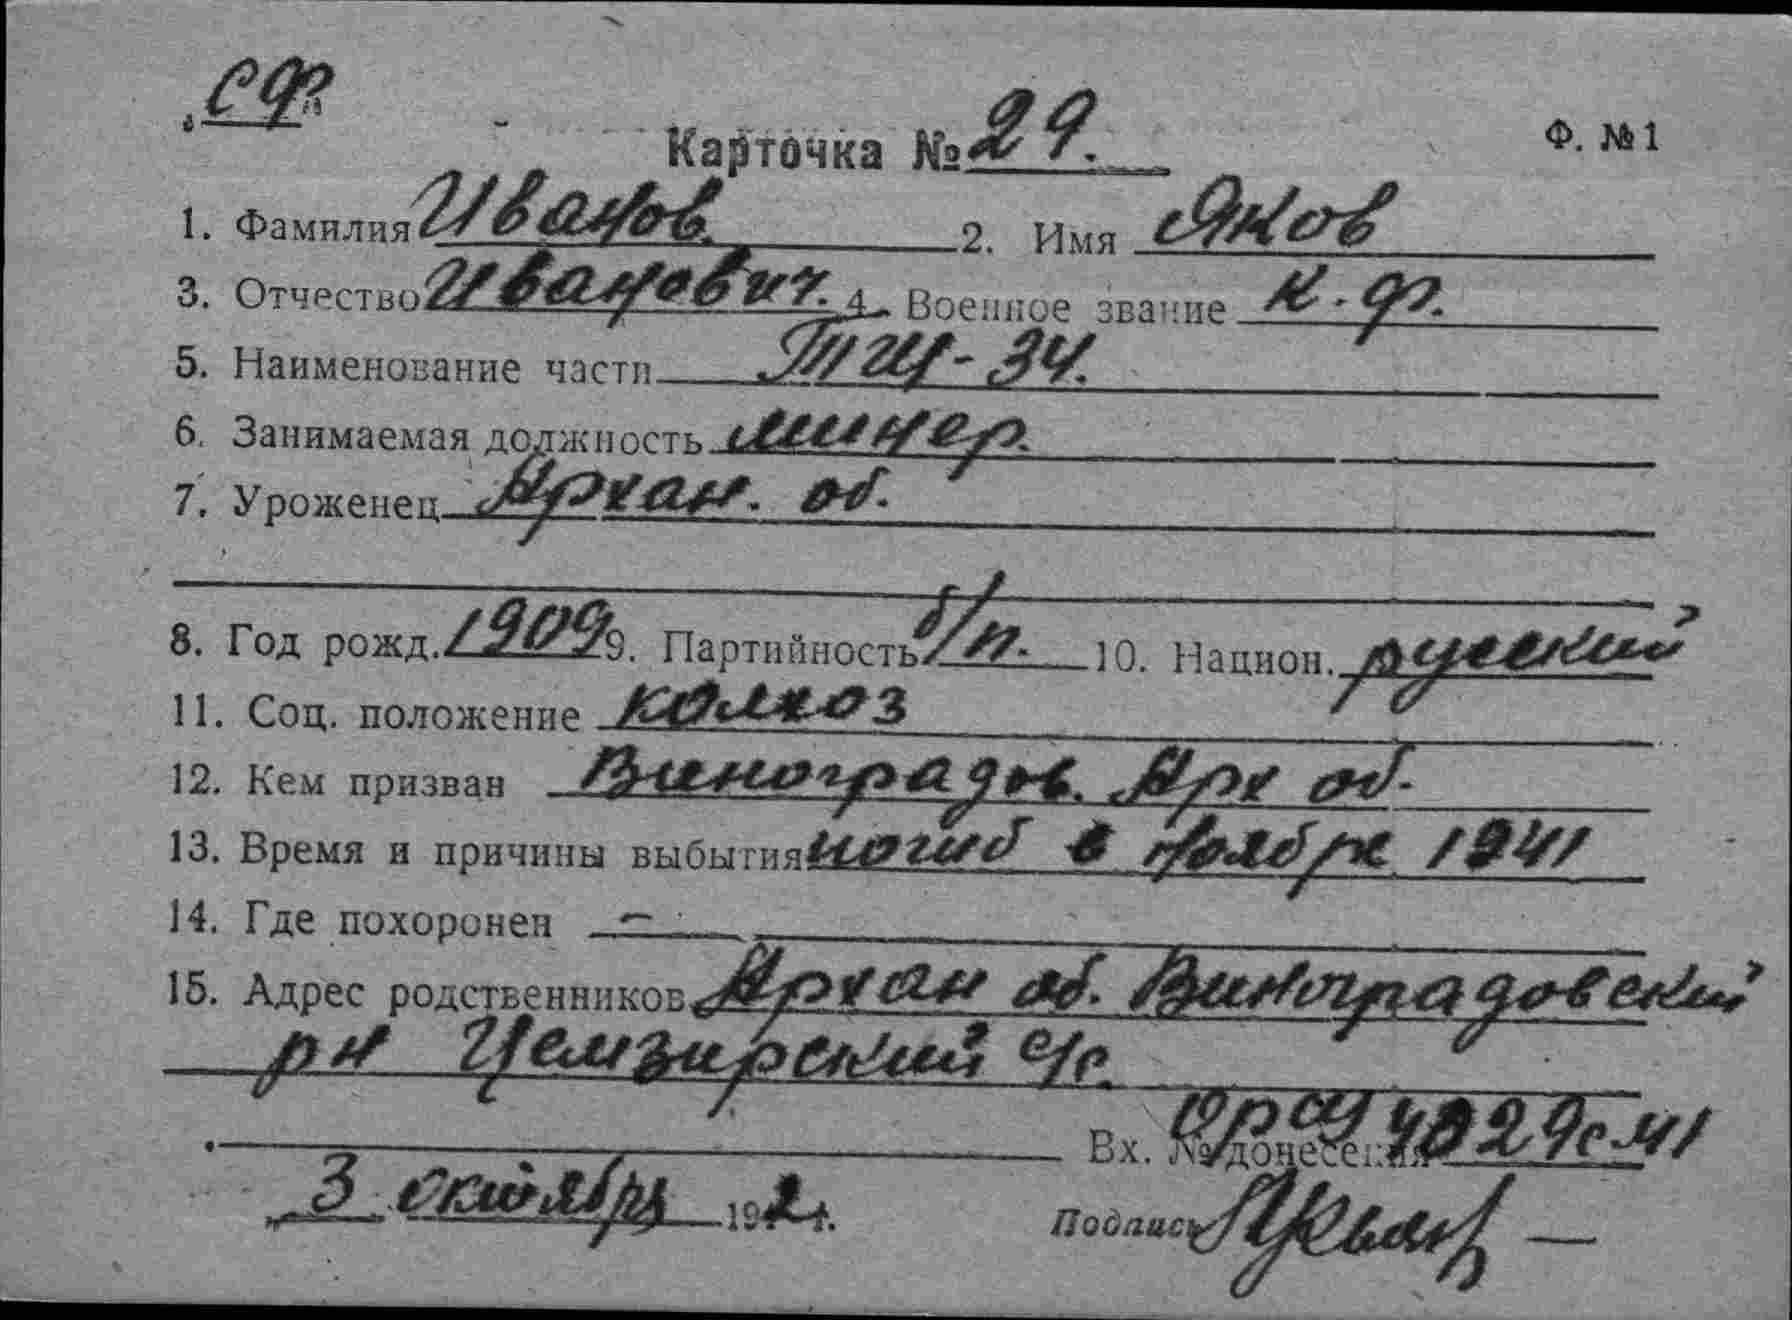 СФ
Карточка № 29. Ф. №1
1. Фамилия Иванов. 2. Имя Яков
3. Отчество Иванович. 4. Военное звание к.ф.
5. Наименование части ТЩ-34.
6. Занимаемая должность минер.
7. Уроженец Архан. об.
8. Год рожд. 1909 9. Партийность б/п. 10. Национ. русский
11. Соц. положение колхоз
12. Кем призван Виноградов. Арх об.
13. Время и причины выбытия погиб в ноябре 1941
14. Где похоронен —
15. Адрес родственников Архан об. Виноградовский
рн с/с.
Вх. № донесения
3 октября 194 г.
Подпись